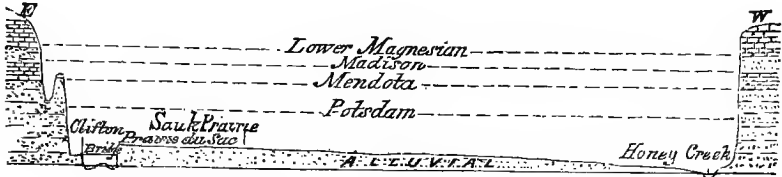 E
W
Lower Magnesian
Madison
Mendota
Potsdam
Clifton
Sauk Prairie
Prairie du Sac
Bridge
Honey Creek
ALLUVIAL